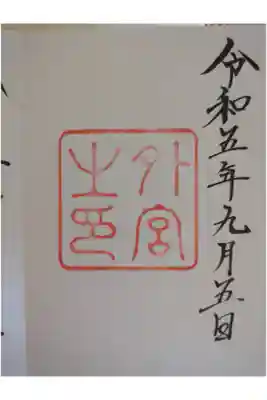 令和五年九月五日
外宮
之印